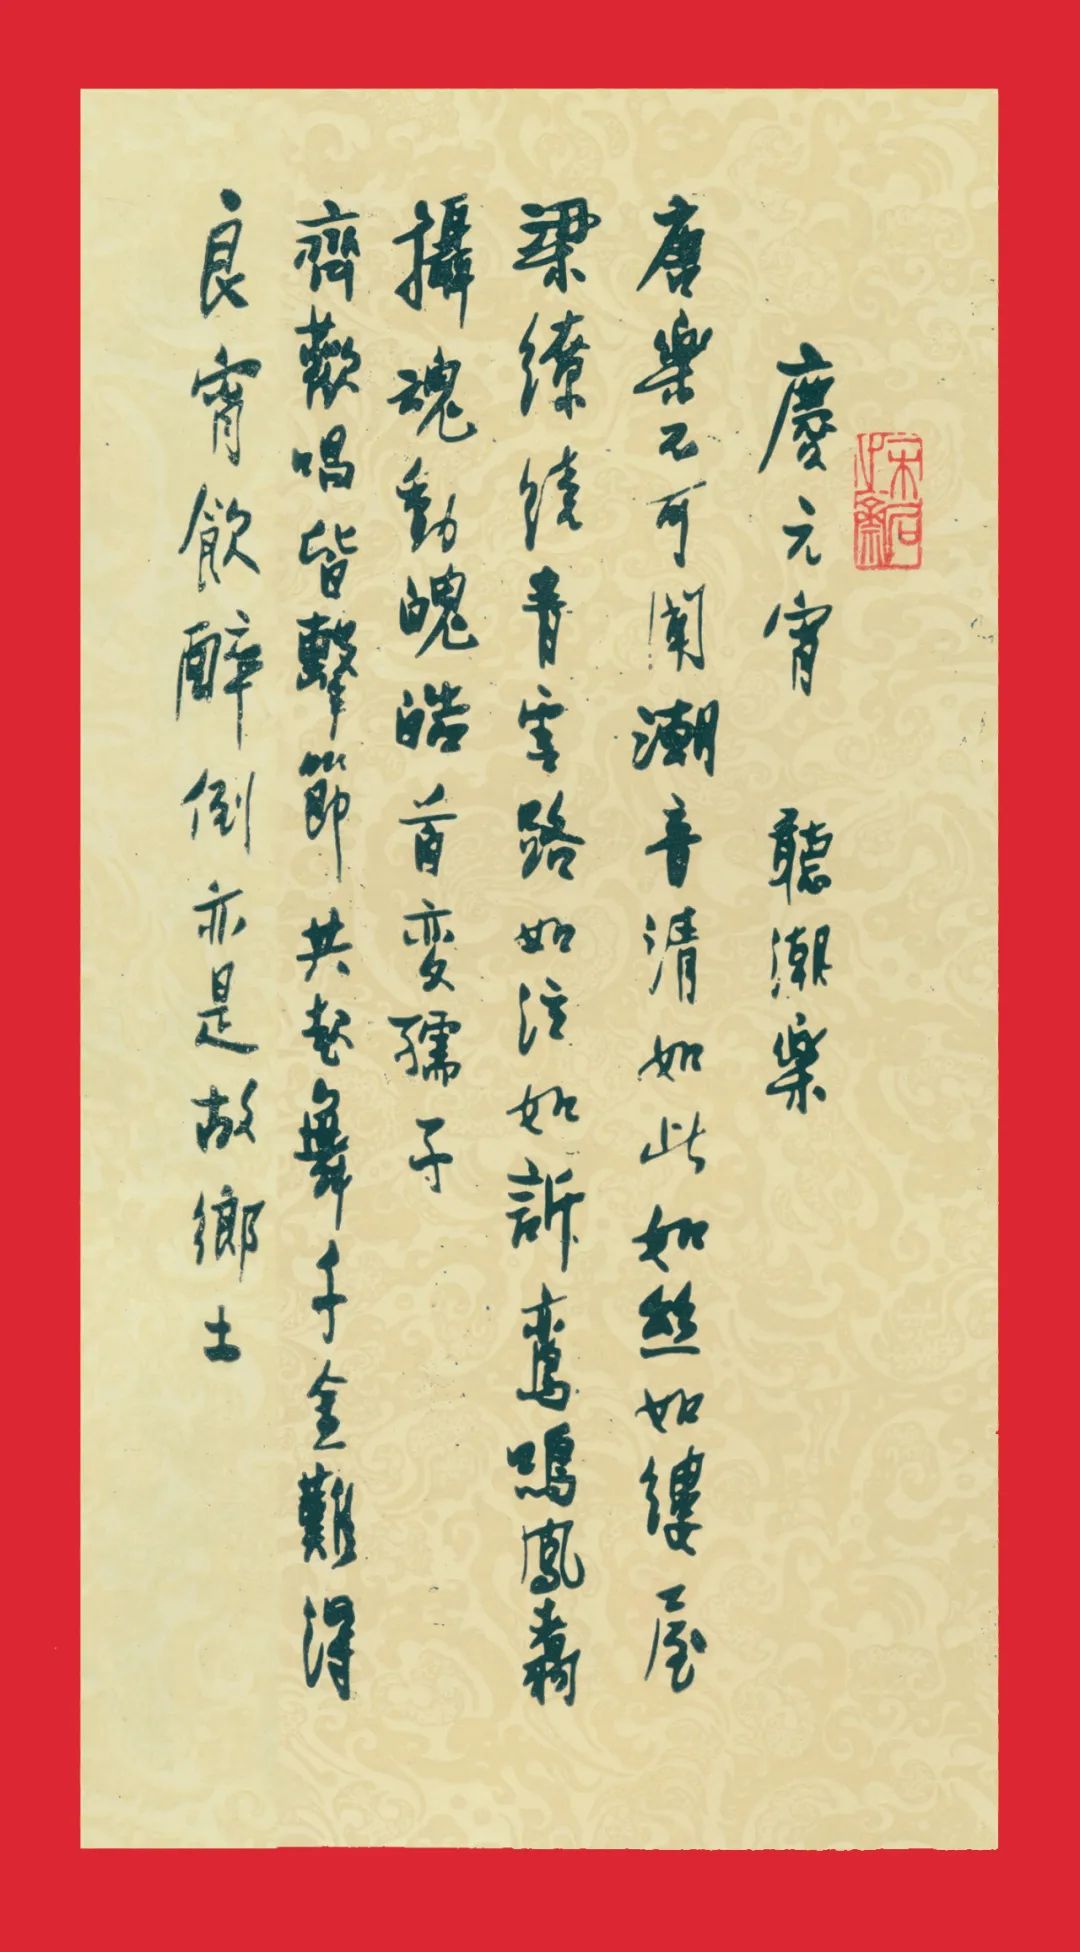 慶元宵 聽潮樂
唐樂不可聞潮音清如此如絲如縷屋
梁繚繞青雲路如泣如訴鸞鳴鳳翥
攝魂動魄皓首变孺子
齊歡唱皆擊節共起舞千金難得
良宵飲醉倒亦是故鄉土